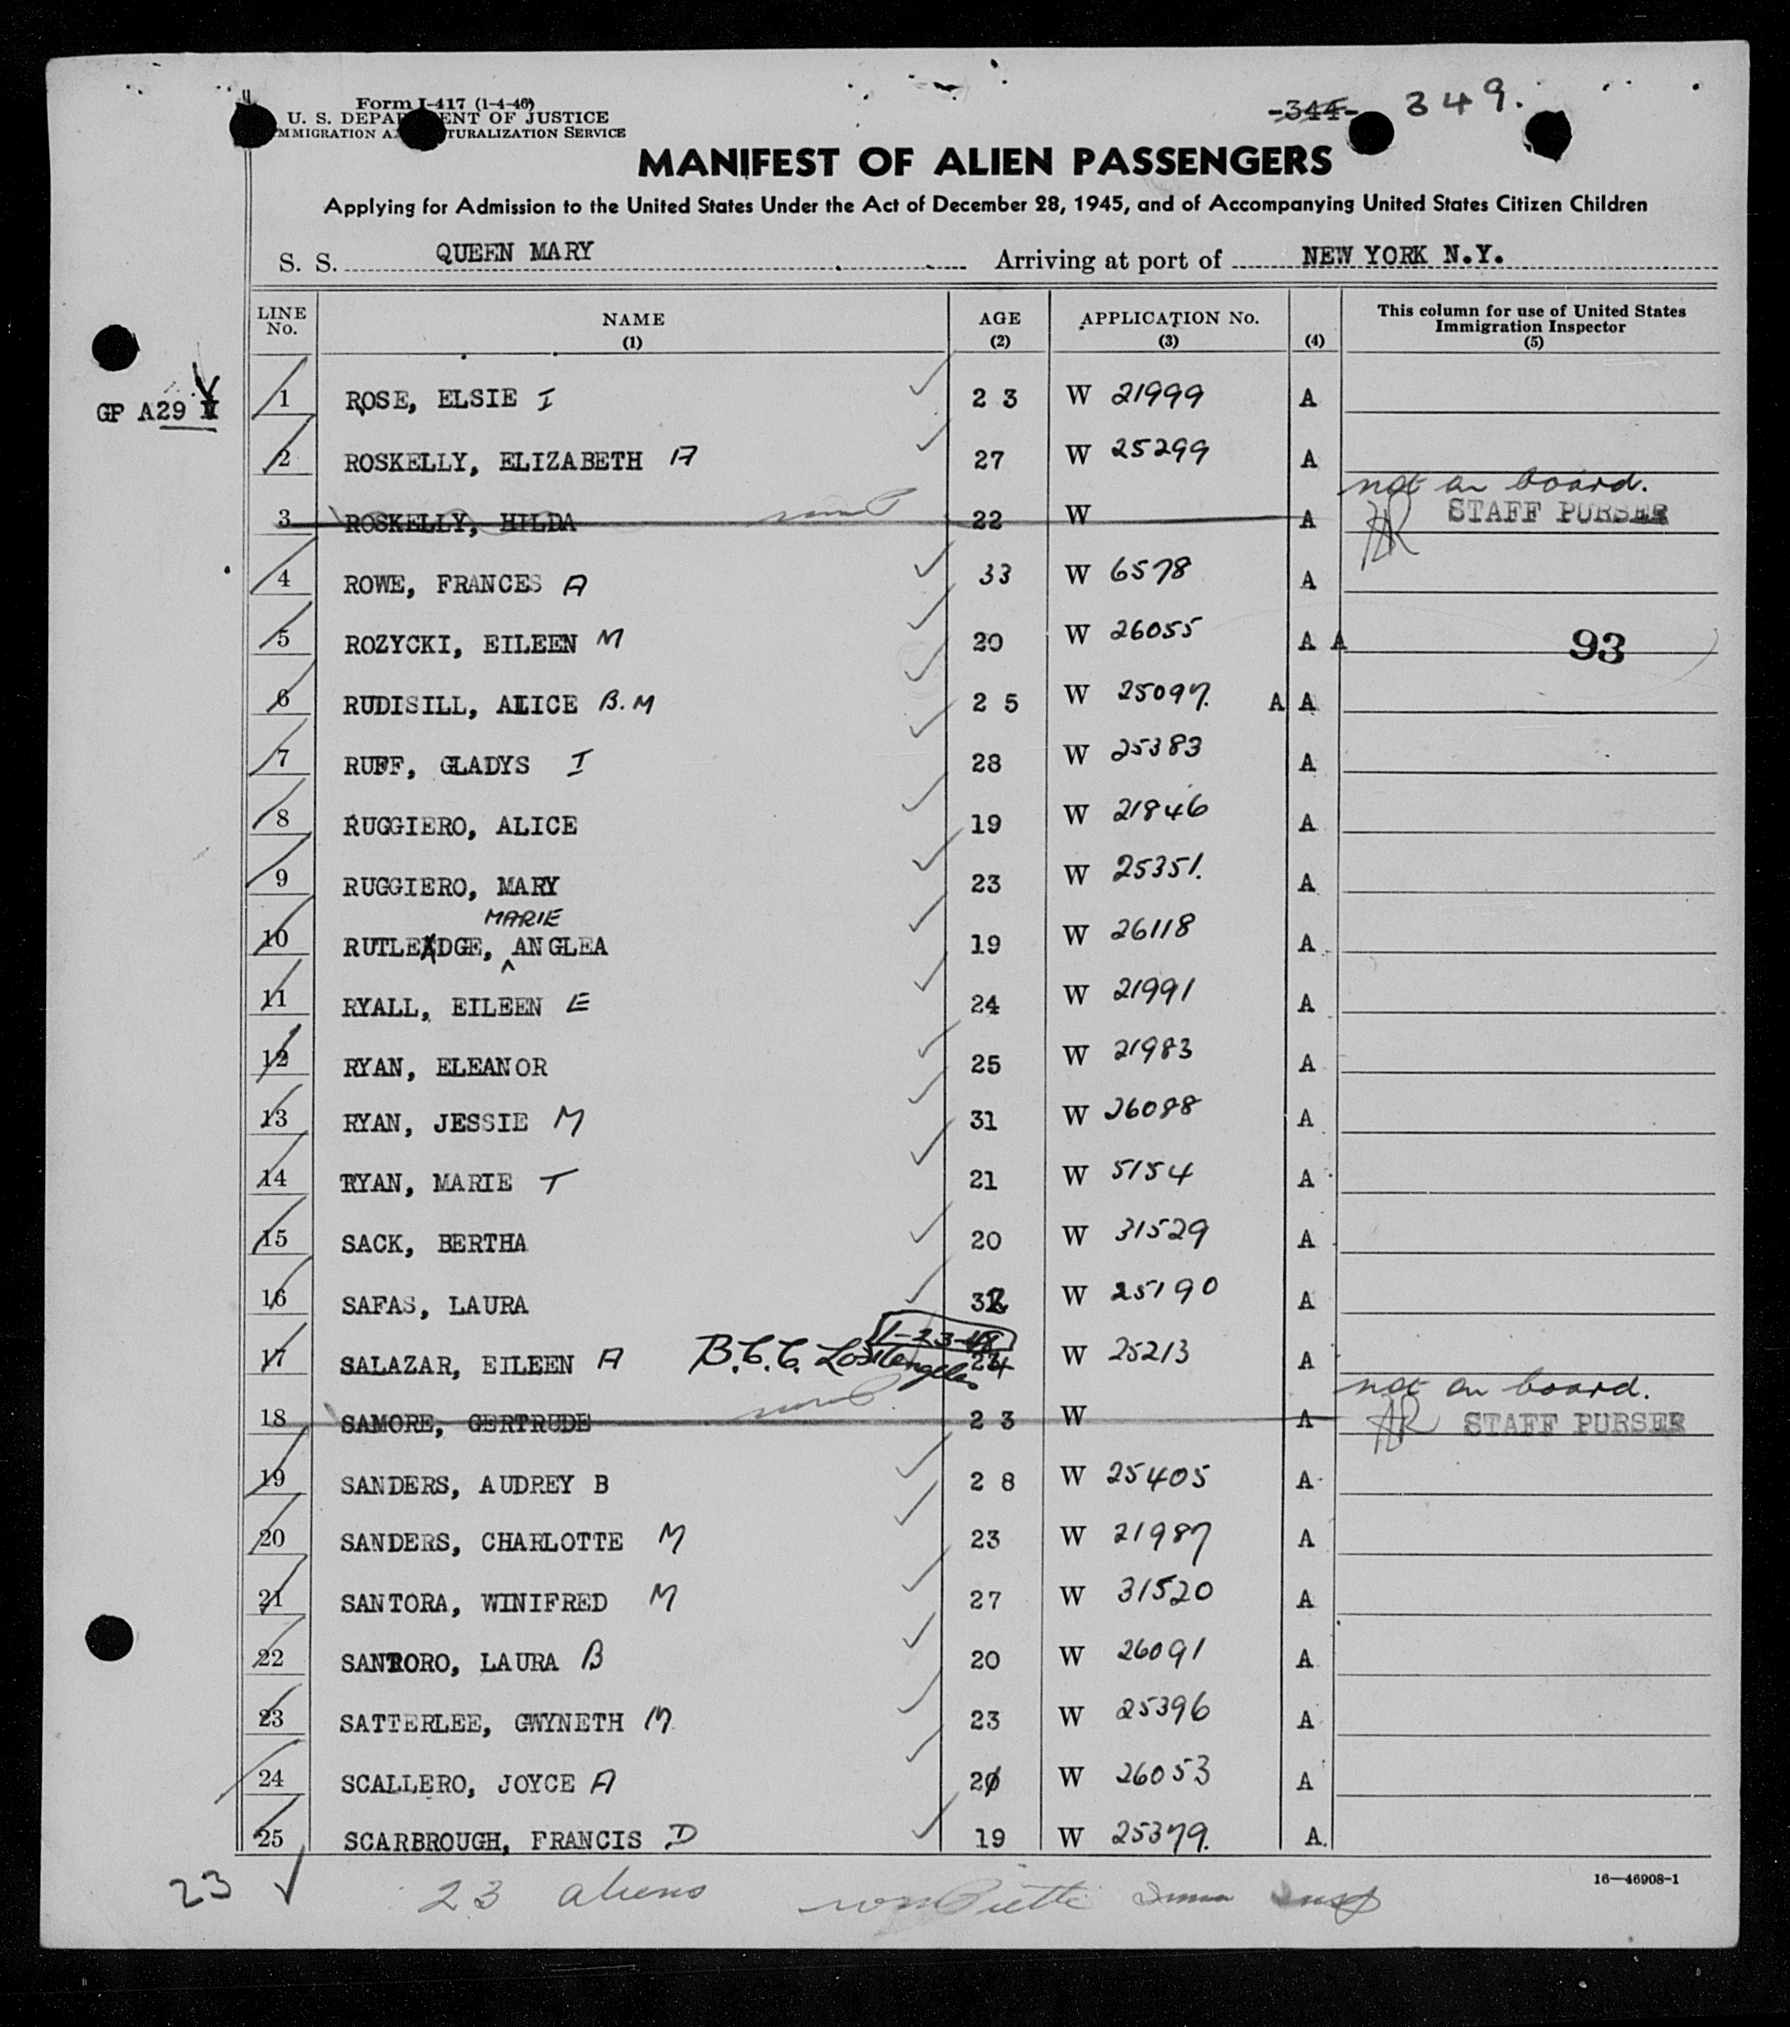 Form I-417 (1-4-46)
U. S. DEPARTMENT OF JUSTICE
IMMIGRATION AND NATURALIZATION SERVICE
-344- 349.
MANIFEST OF ALIEN PASSENGERS
Applying for Admission to the United States Under the Act of December 28, 1945, and of Accompanying United States Citizen Children
S. S. QUEEN MARY Arriving at port of NEW YORK N.Y.
LINE No. NAME (1) AGE (2) APPLICATION No. (3) (4) This column for use of United States Immigration Inspector (5)
GP A29 V
1 ROSE, ELSIE I 2 3 W 21999 A
2 ROSKELLY, ELIZABETH A 27 W 25299 A
not on board.
3 ROSKELLY, HILDA 22 W A STAFF PURSER
4 ROWE, FRANCES A 33 W 6578 A
5 ROZYCKI, EILEEN M 20 W 26055 A A 93
6 RUDISILL, ALICE B.M 2 5 W 25097. A A
7 RUFF, GLADYS I 28 W 25383 A
8 RUGGIERO, ALICE 19 W 21846 A
9 RUGGIERO, MARY 23 W 25351. A
MARIE
10 RUTLEADGE, ^ ANGLEA 19 W 26118 A
11 RYALL, EILEEN E 24 W 21991 A
12 RYAN, ELEANOR 25 W 21983 A
13 RYAN, JESSIE M 31 W 26088 A
14 RYAN, MARIE T 21 W 5154 A
15 SACK, BERTHA 20 W 31529 A
16 SAFAS, LAURA 32 W 25190 A
1-23-48
17 SALAZAR, EILEEN A B.C.C. Los Angeles 24 W 25213 A
not on board.
18 SAMORE, GERTRUDE 2 3 W A STAFF PURSER
19 SANDERS, AUDREY B 2 8 W 25405 A
20 SANDERS, CHARLOTTE M 23 W 21987 A
21 SANTORA, WINIFRED M 27 W 31520 A
22 SANTORO, LAURA B 20 W 26091 A
23 SATTERLEE, GWYNETH M 23 W 25396 A
24 SCALLERO, JOYCE A 20 W 26053 A
25 SCARBROUGH, FRANCIS D 19 W 25379. A.
16—46908-1
23 23 aliens